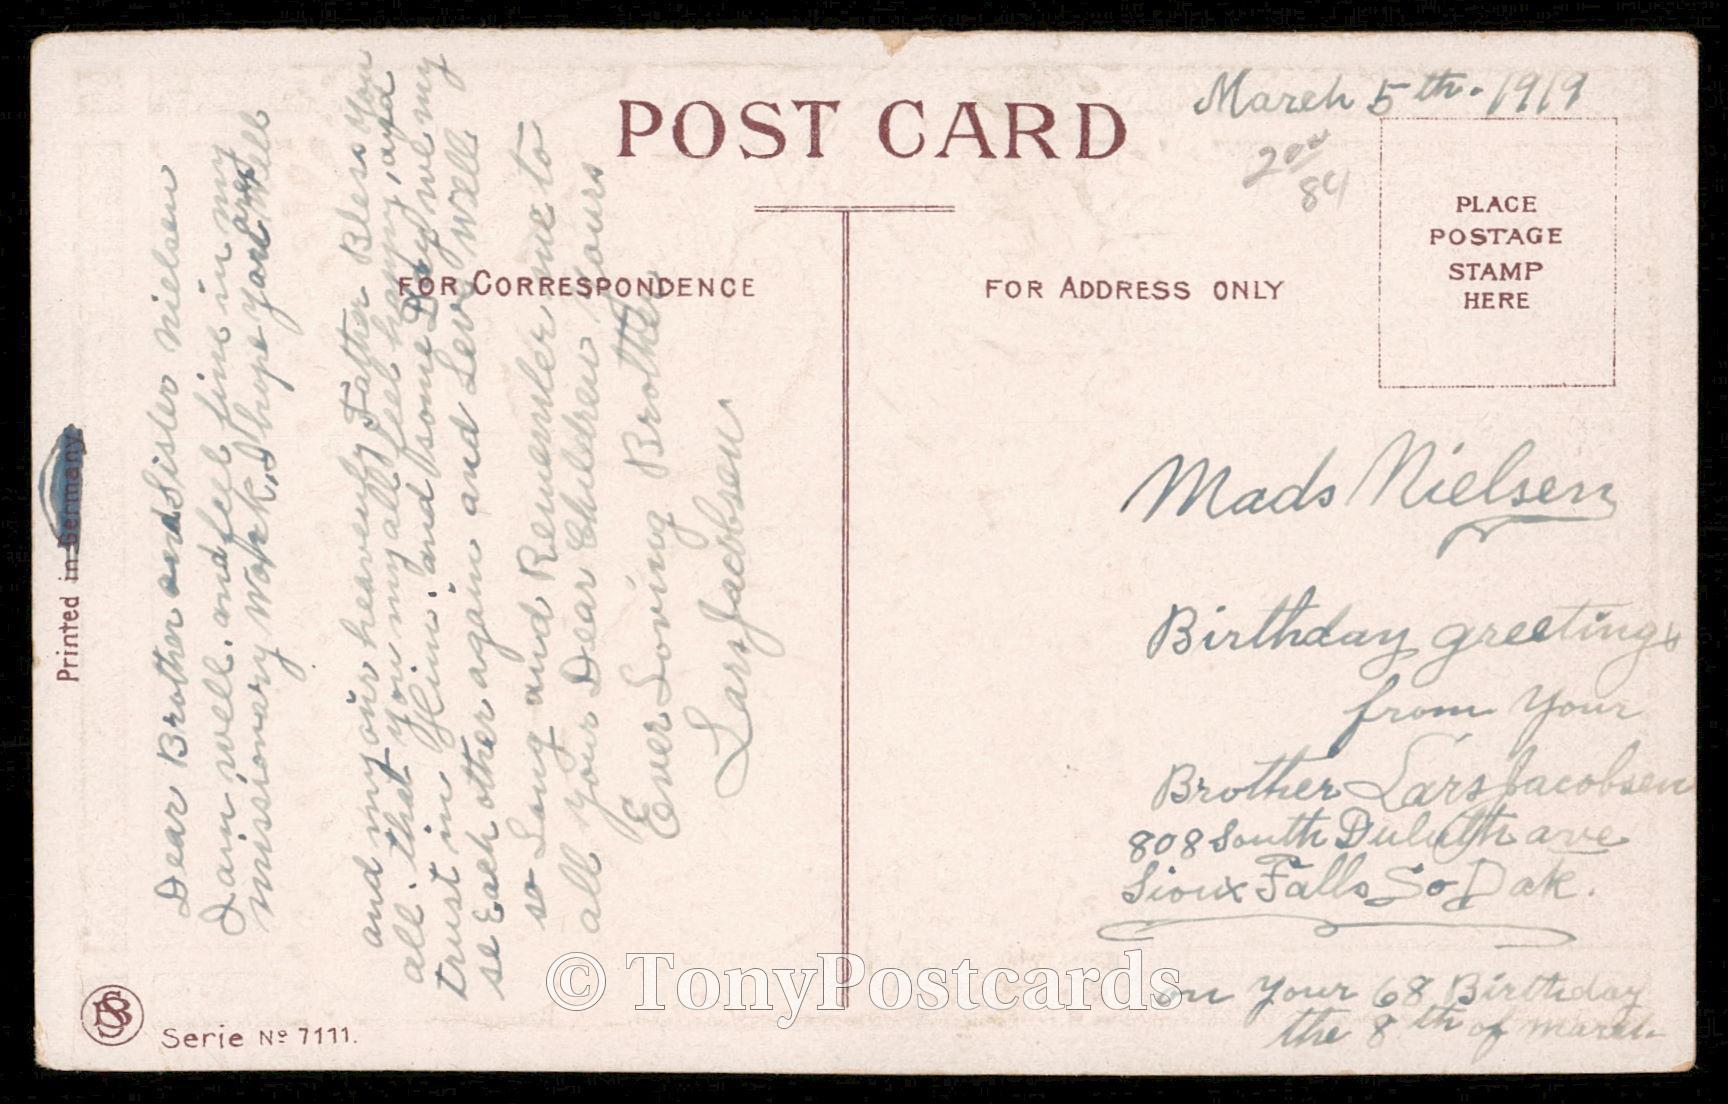 POST CARD
March 5th. 1919
200
84
PLACE
POSTAGE
STAMP
HERE
FOR CORRESPONDENCE
FOR ADDRESS ONLY
Dear Brother and Sister Nielsen
I am well. and feel fine in my
missionary Work, I hope you are Well
and my our heavenly Father Bless You
all. that you my all feel happy, and
trust in Him. and some Day we my
se Each other again and Leve Well
so Long and Remember me to
all your Dear Children Yours
Ever Loving Brother
Lars Jacobsen
Mads Nielsen
Birthday greetings
from Your
Brother Lars Jacobsen
808 South Duluth ave
Sioux Falls So Dak.
on Your 68 Birthday
the 8th of march
Printed in Germany.
BS
Serie No 7111.
© TonyPostcards